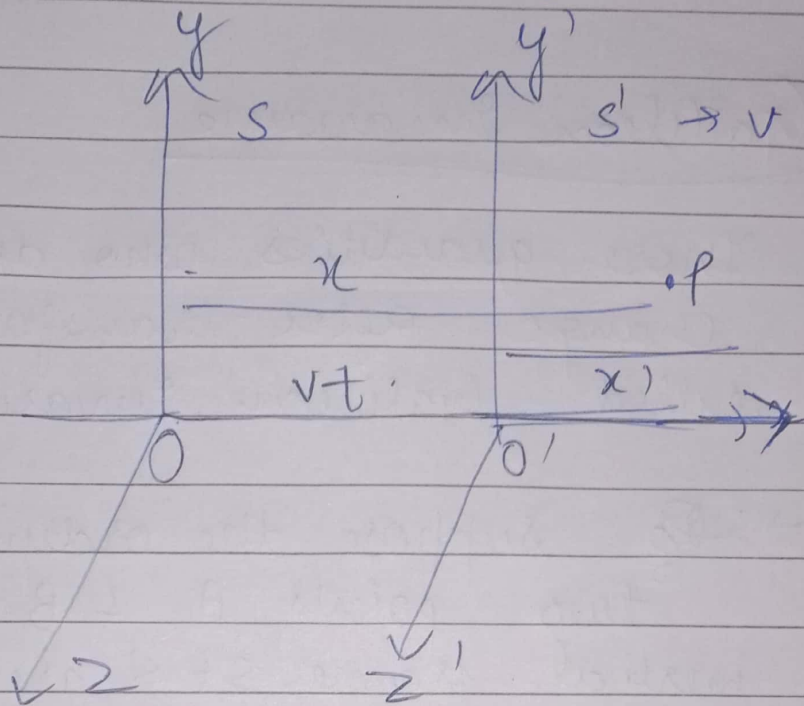 y y'
S S' → v
x .P
vt. x'
O O'
z z'